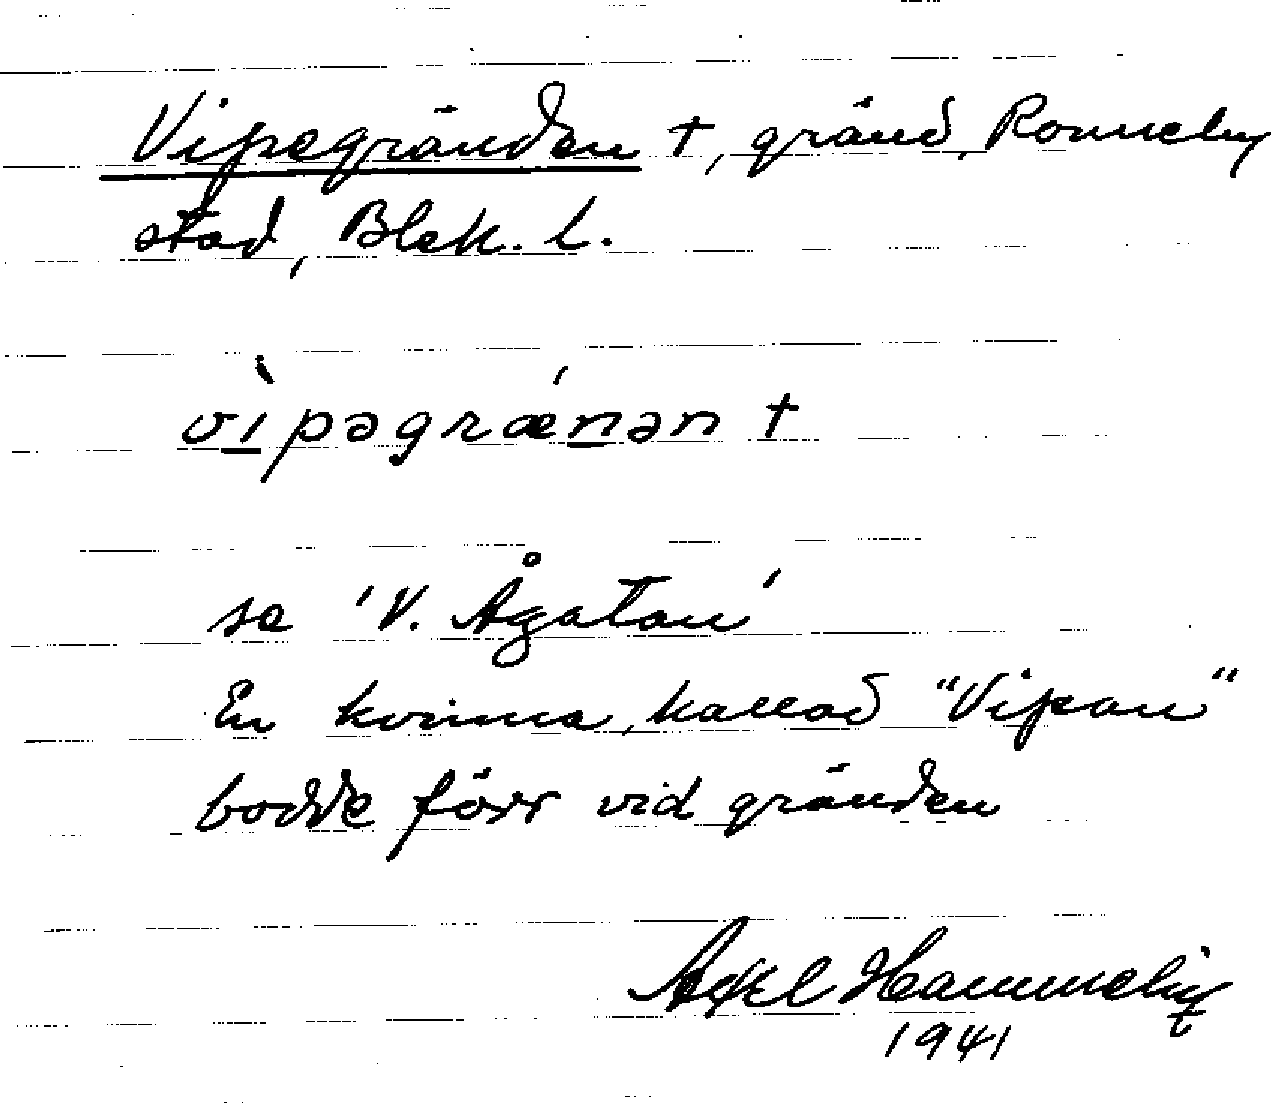 Vipegränden †, gränd, Ronneby
stad, Blek. l.
vìpəgrænən †
se 'V. Ågatan'
En kvinna, kallad "Vipan"
bodde förr vid gränden
Axel
1941